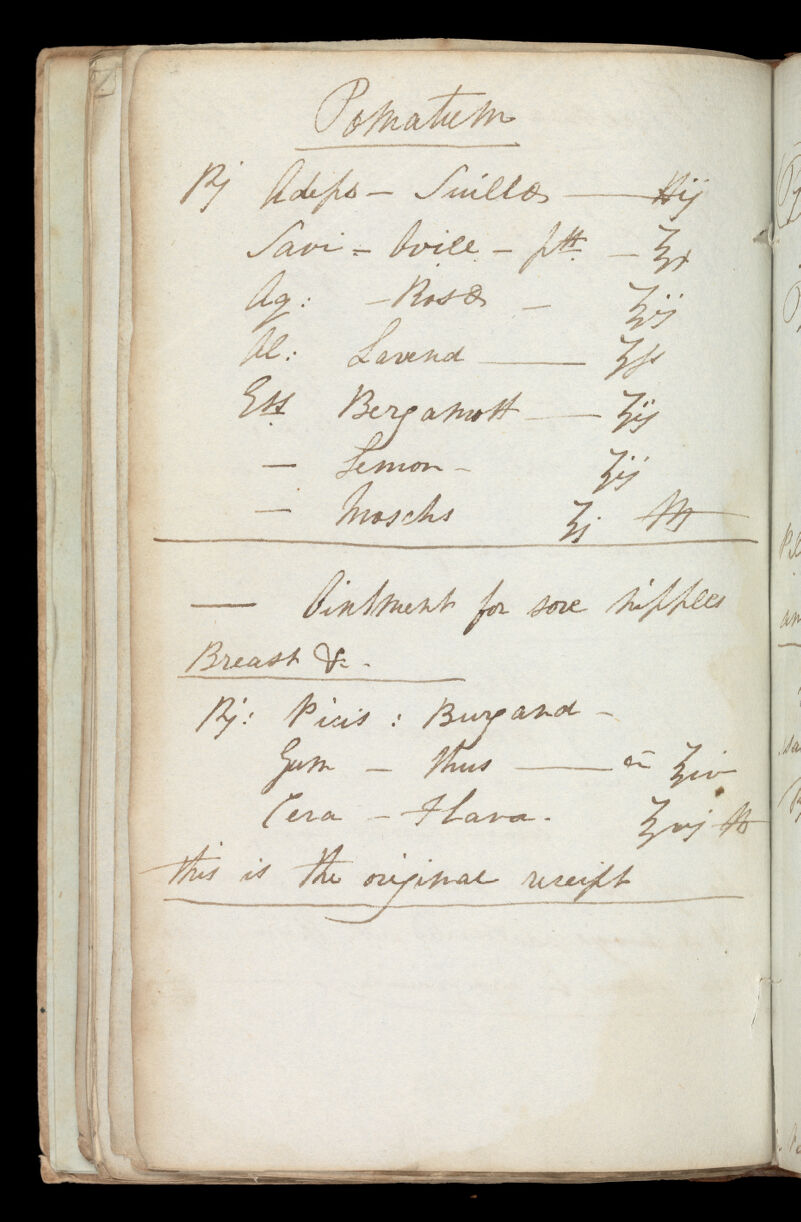 Pomatum
℞ Adeps – Suillæ — ℔ij
Savi – Ovill – ptt – ℥x
Aq: – Rosæ – ℥ij
Ol: Lavend — ℥ſs
Ess Bergamott — ℥ij
– Lemon – ℥ij
– Moschs ʒj M
— Ointment for sore nipples
Breast &c.
℞: Picis : Burgand –
Gum – Thus — a ℥iv
Cera – Flava. ℥vj
this is the original receipt